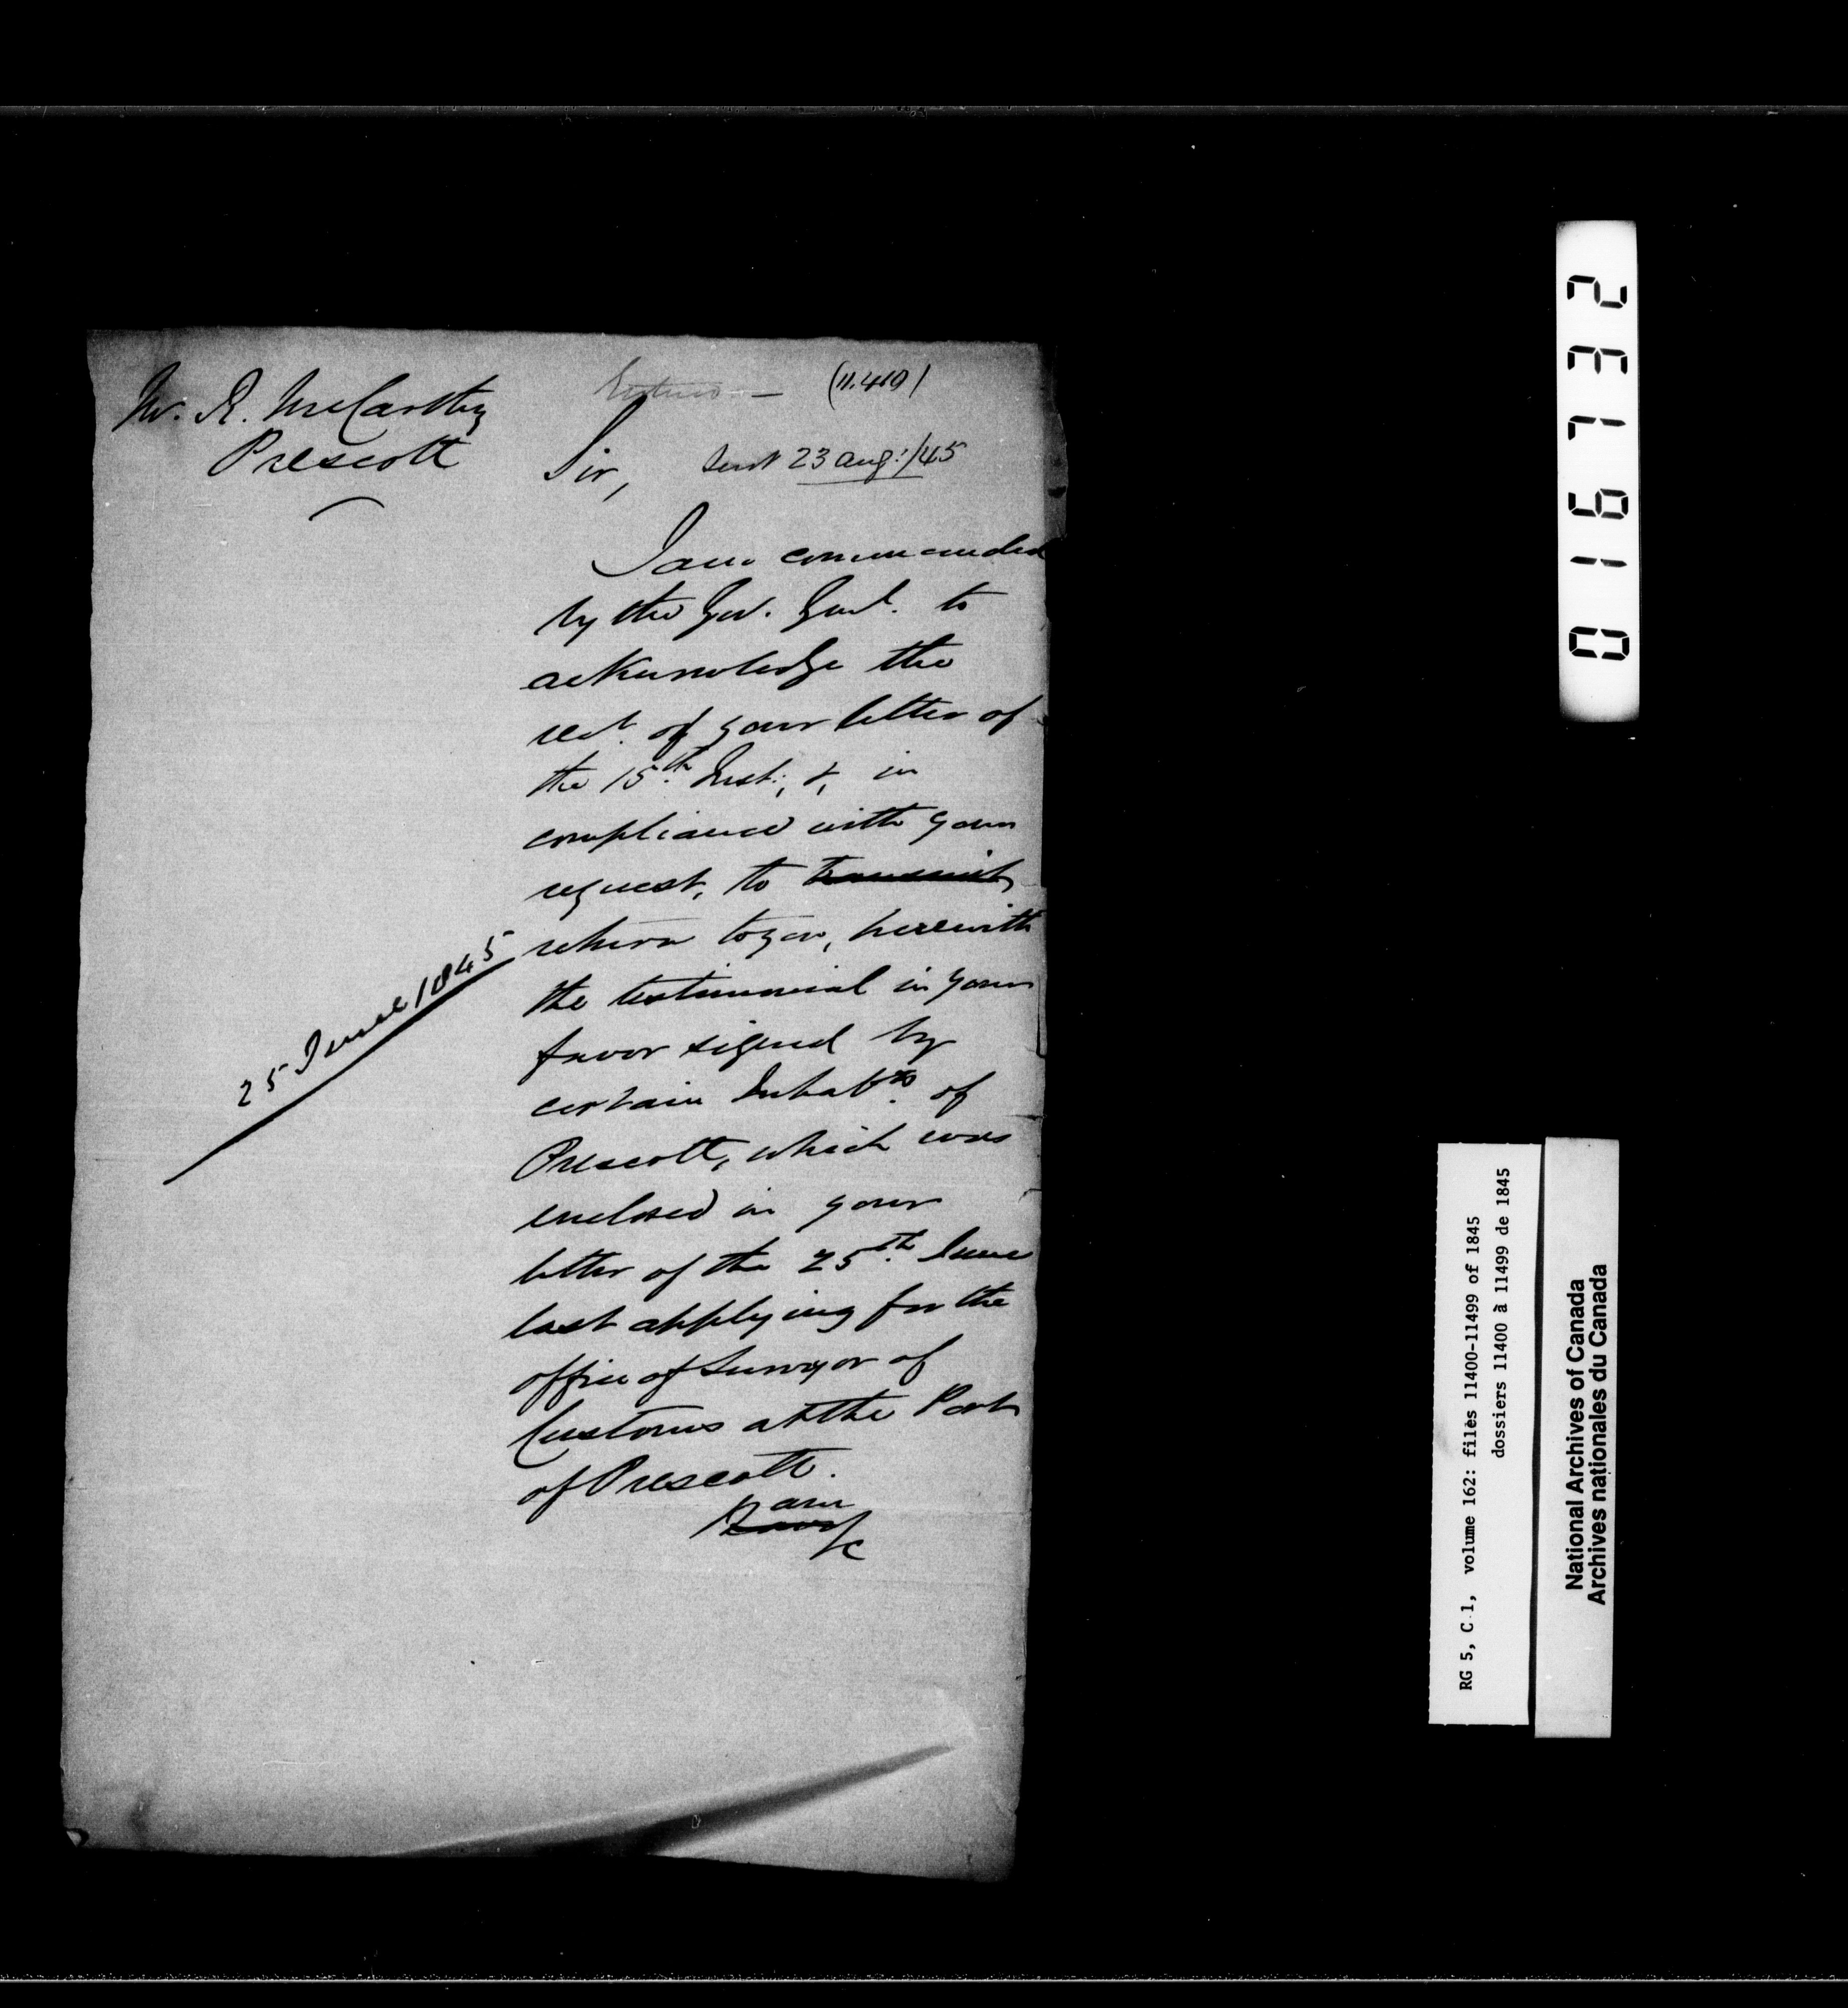 Mr. R. McCarthy
Prescott
(11.419)
Sir,
Sent 23 Aug:/45
I am commanded
by the Gov. Genl. to
acknowledge the
rect. of your letter of
the 15th. Inst:, &, in
compliance with your
request, to transmit
return to you, herewith
the testimonial in your
favor signed by
certain Inhabts. of
Prescott, which was
enclosed in your
letter of the 25th. June
last applying for the
office of Surveyor of
Customs at the Port
of Prescott.
am
&c
25 June 1845
016732
RG 5, C 1, volume 162: files 11400-11499 of 1845
dossiers 11400 à 11499 de 1845
National Archives of Canada
Archives nationales du Canada